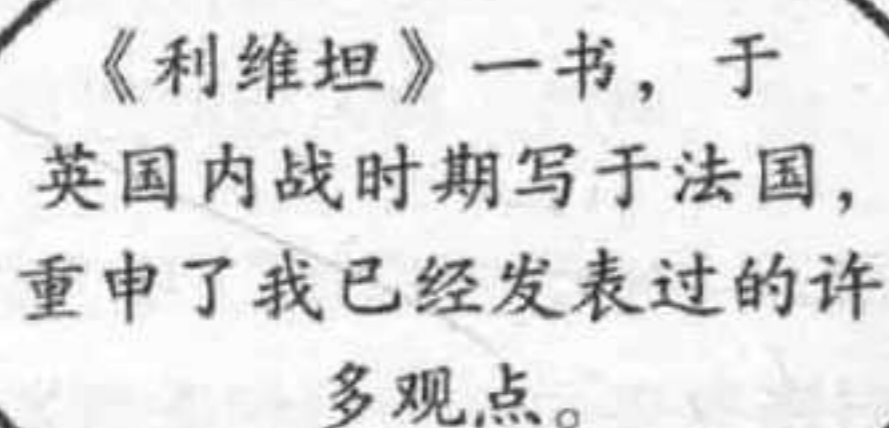 《利维坦》一书，于
英国内战时期写于法国，
重申了我已经发表过的许
多观点。